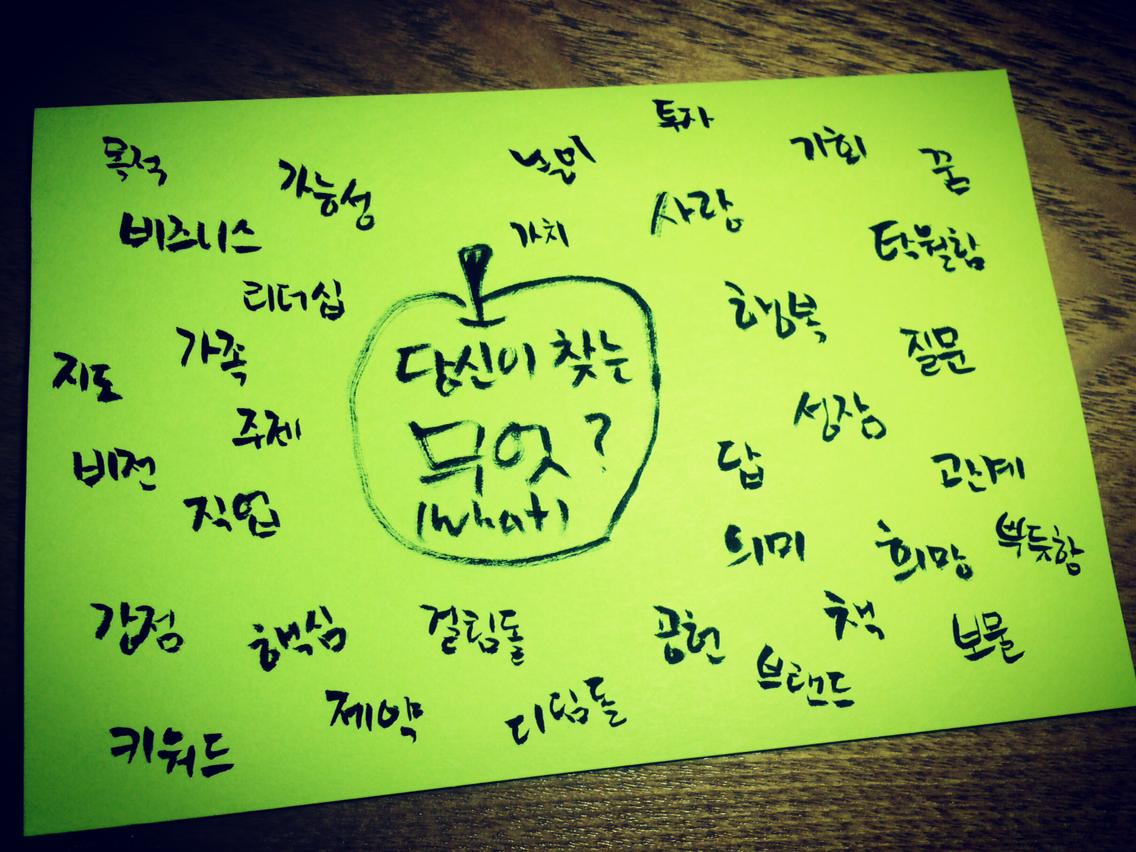 투자
목적
가능성
가치
사랑
꿈
비즈니스
탁월함
리더십
행복
가족
질문
지도
당신이 찾는
무엇?
(what)
주제
성장
비전
답
관계
직업
의미
희망
뿌듯함
강점
핵심
걸림돌
공헌
책
보물
브랜드
제약
디딤돌
키워드